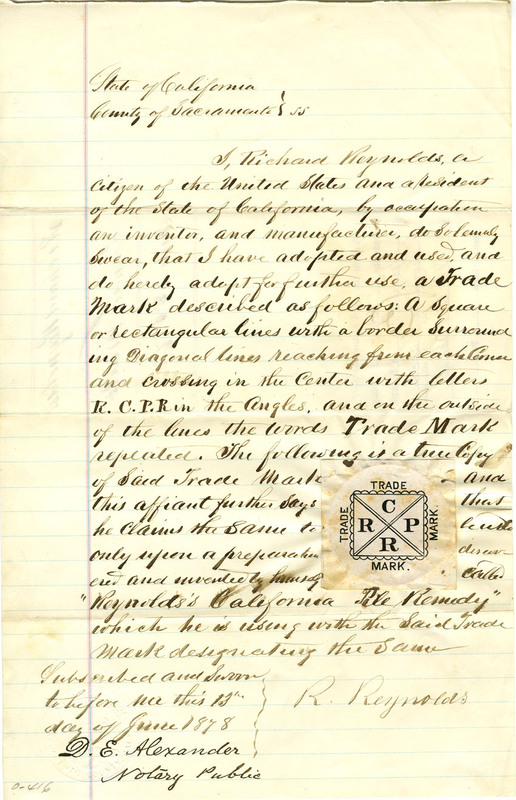 State of California
County of Sacramento } ss
I, Richard Reynolds, a
citizen of the United States and a resident
of the State of California, by occupation
an inventor, and manufacturer, do solemnly
swear, that I have adopted and used, and
do hereby adopt for further use, a Trade
Mark described as follows: A Square
or rectangular lines with a border Surround
ing Diagonal lines reaching from each Corner
and crossing in the Center with letters
R. C. P. R in the Angles, and on the outside
of the lines the words Trade Mark
repeated. The following is a true Copy
of Said Trade Mark and
this affiant further Says that
he claims the Same to
only upon a preparation discov
ered and invented by himself Called
"Reynolds's California Pile Remedy"
which he is using with the Said Trade
Mark designating the Same
TRADE
TRADE
C
R P
R
MARK.
MARK.
Subscribed and Sworn
to before me this 13th
day of June 1878
D. E. Alexander
Notary Public
R. Reynolds
0-416